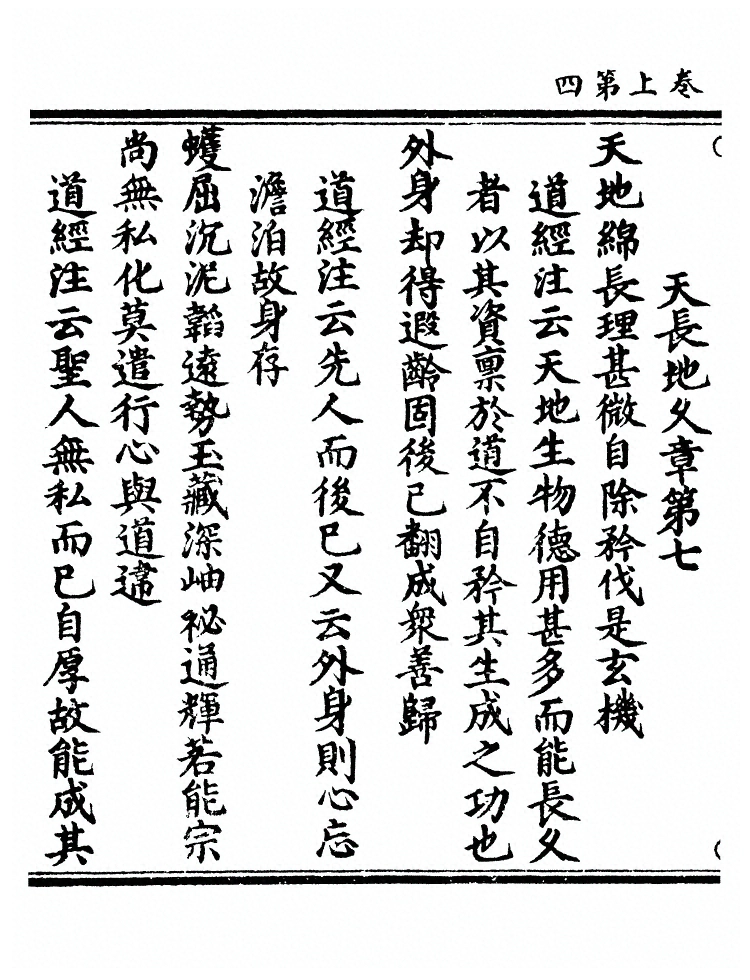 卷上第四
天長地久章第七
天地綿長理甚微自除矜伐是玄機
道經注云天地生物德用甚多而能長久
者以其資禀於道不自矜其生成之功也
外身却得遐齡固後己翻成衆善歸
道經注云先人而後已又云外身則心忘
澹泊故身存
蠖屈沉泥韜遠勢玉藏深岫祕通輝若能宗
尚無私化莫遣行心與道違
道經注云聖人無私而已自厚故能成其